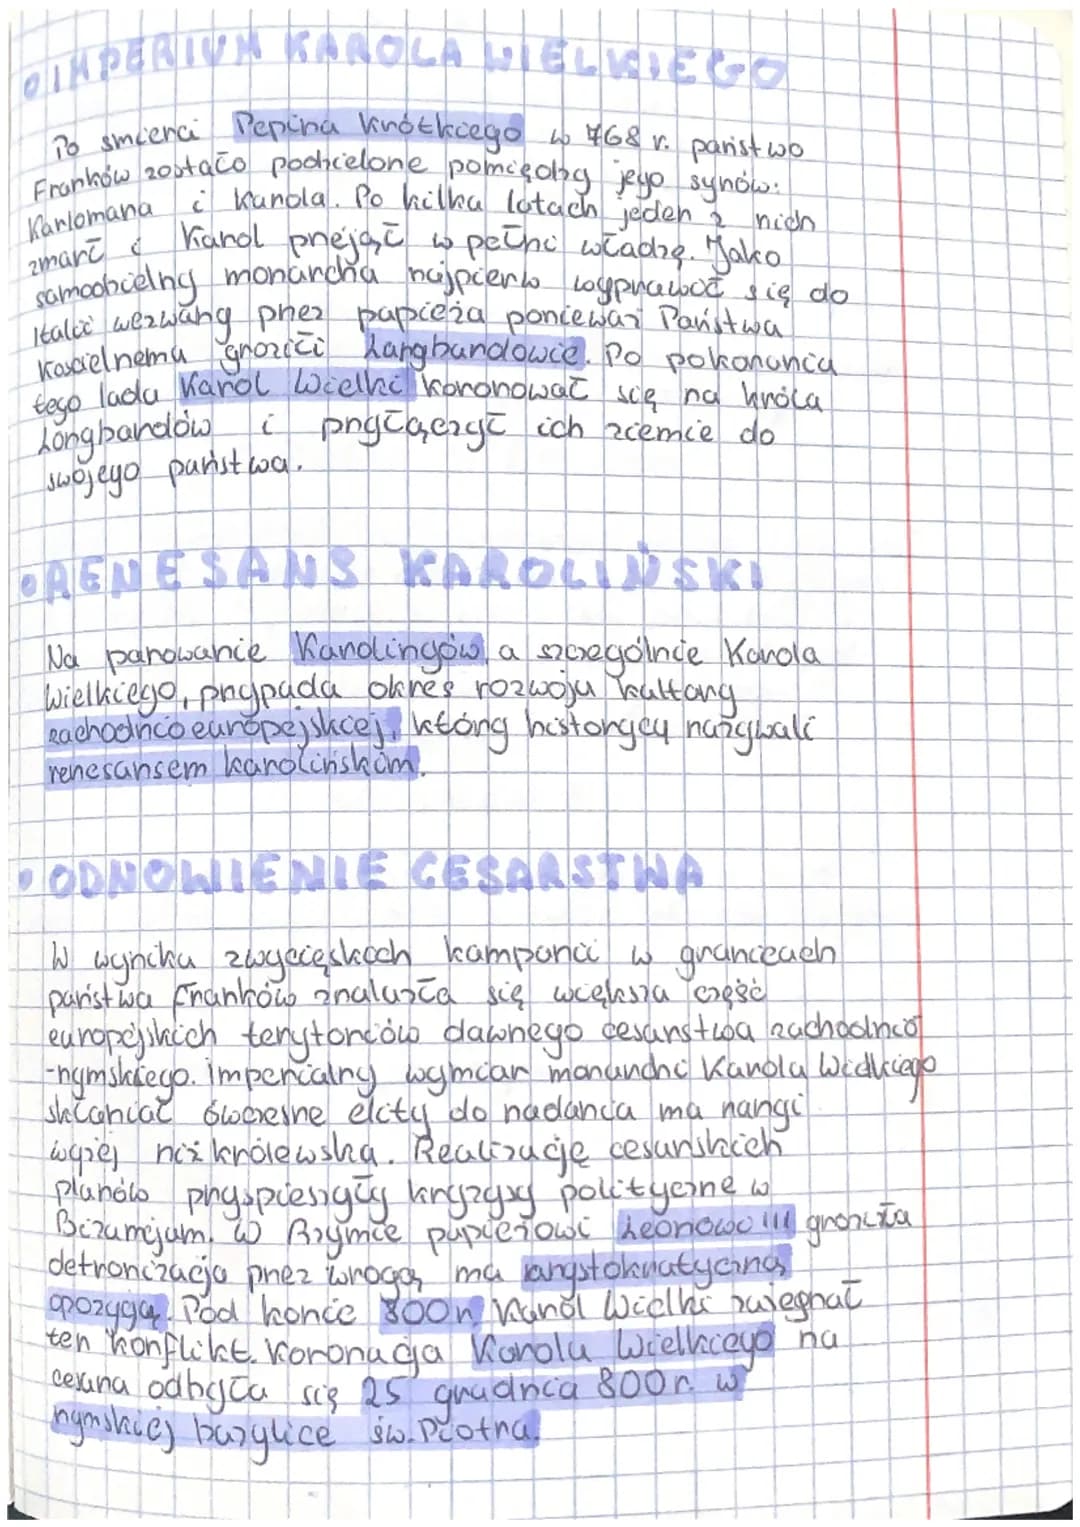 IMPERIUM KAROLA WIELKIEGO
Po smierci Pepina Krótkiego w 768 r. państwo
Franków zostało podzielone pomiędzy jego synów:
Karlomana i Karola. Po kilku latach jeden z nich
zmarł i Karol przejął w pełni władzę. Jako
samodzielny monarcha najpierw wyprawoł się do
Italii wezwany przez papieża ponieważ Państwu
Koscielnemu groziłi Longbardowie. Po pokonaniu
tego ludu Karol Wielki koronował się na króla
Longbardów i przyłączył ich ziemie do
swojego państwa.
RENESANS KAROLIŃSKI
Na panowanie Karolingów, a szczególnie Karola
Wielkiego, przypada okres rozwoju kultury
zachodnio europejskiej, który historycy nazywali
renesansem karolińskim.
ODNOWIENIE CESARSTWA
W wyniku zwycięskich kampanii w granicach
państwa Franków znalazła się większa część
europejskich terytoriów dawnego cesarstwa zachodnio
-rzymskiego. Imperialny wymiar monarchi Karola Wielkiego
skłaniał ówczesne elity do nadania mu rangi
wyżej niż królewska. Realizację cesarskich
planów przyspieszyły kryzysy polityczne w
Bizancjum. W Rzymie papieżowi Leonowo III groziła
detronizacja przez wrogą mu arystokratyczną
opozycją. Pod konie 800r. Karol Wielki zażegnał
ten konflikt. Koronacja Karola Wielkiego na
cesarza odbyła się 25 grudnia 800 r. w
rzymskiej bazylice św. Piotra.